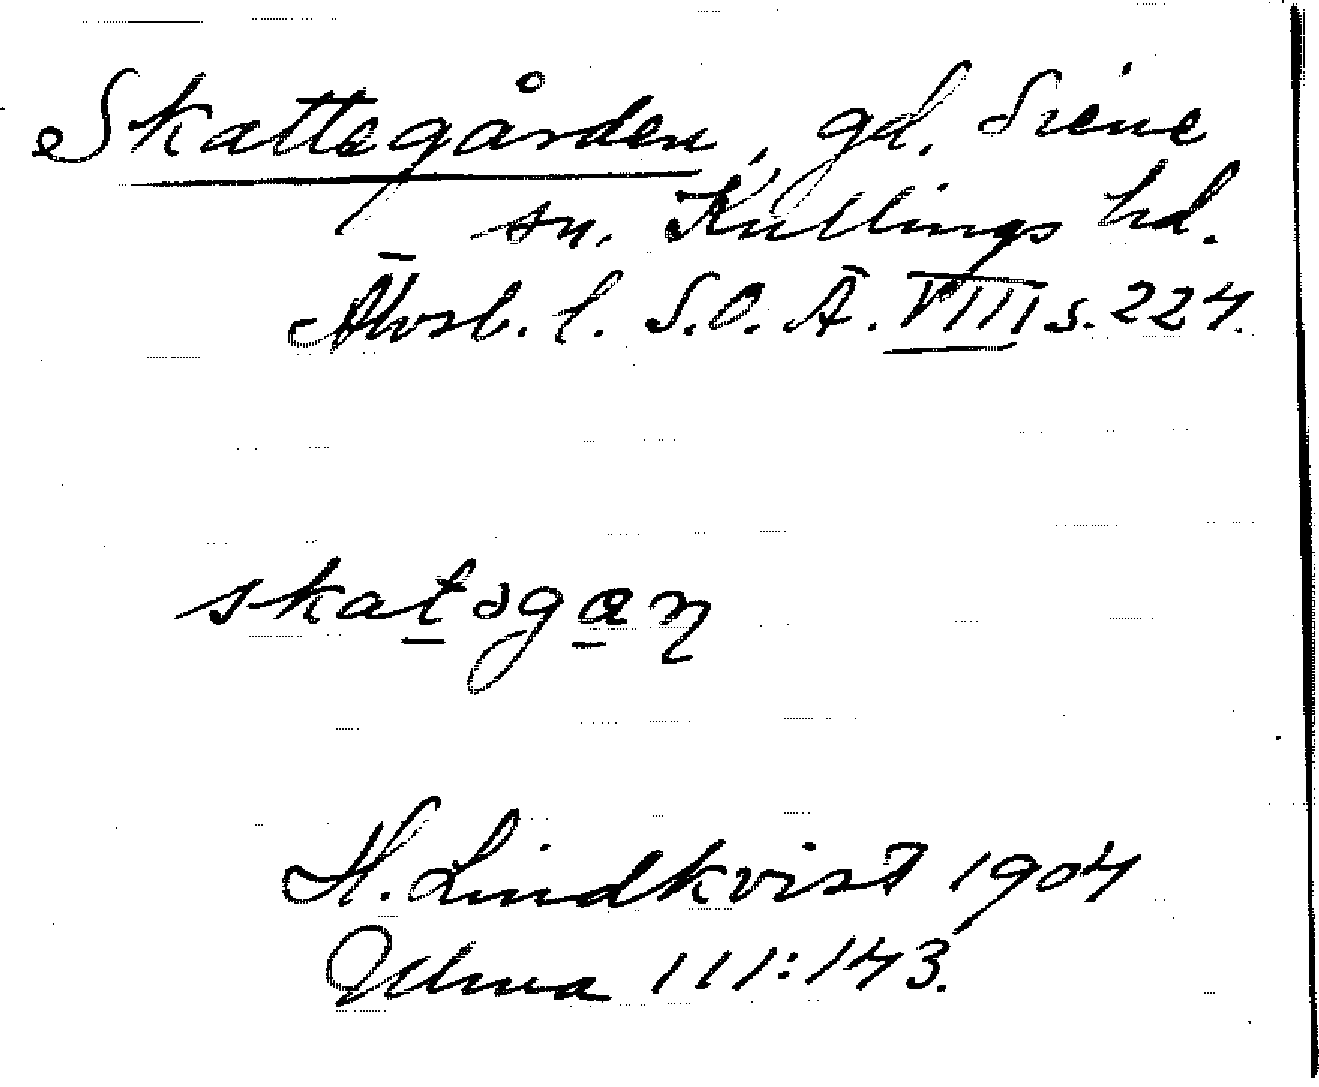 Skattegården, gd. Siene
sn. Kullings hd.
Älvsb. l. S.O.Ä. VIII s. 224.
skatəgan
H. Lindkvist 1904
Ulma 111:143.